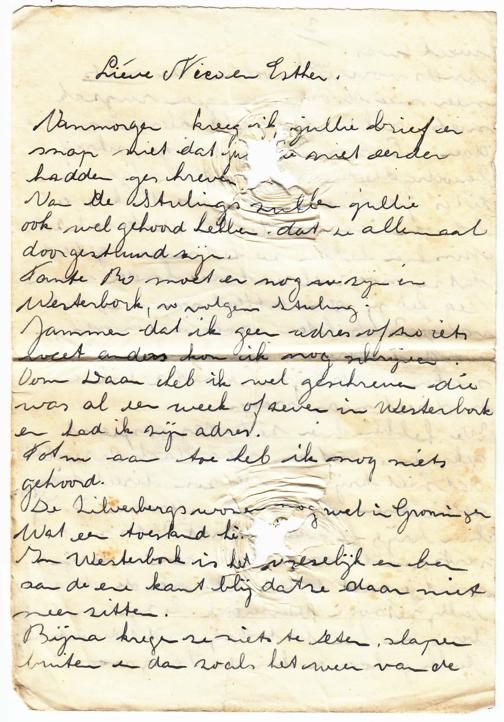 Liéve Nico en Esther.
Vanmorgen kreeg ik jullie brief en
snap niet dat niet eerder
hadden geschreven
Van De Stulings zullen jullie
ook wel gehoord hebben dat ze allemaal
doorgestuurd zijn.
Tante Bo moet er nog zijn in
Westerbork, volgens Stuling.
Jammer dat ik geen adres of zo iets
weet anders kon ik nog schrijven.
Oom Daan heb ik wel geschreven die
was al een week of zeven in Westerbork
en had ik zijn adres.
Tot nu aan toe heb ik nog niets
gehoord.
De Zilverbergs wonen nog wel in Groningen
Wat een toestand
In Westerbork is het vreselijk en ben
aan de ene kant blij dat ze daar niet
meer zitten.
Bijna kregen ze niets te eten, slapen
buiten en dan zoals het weer van de